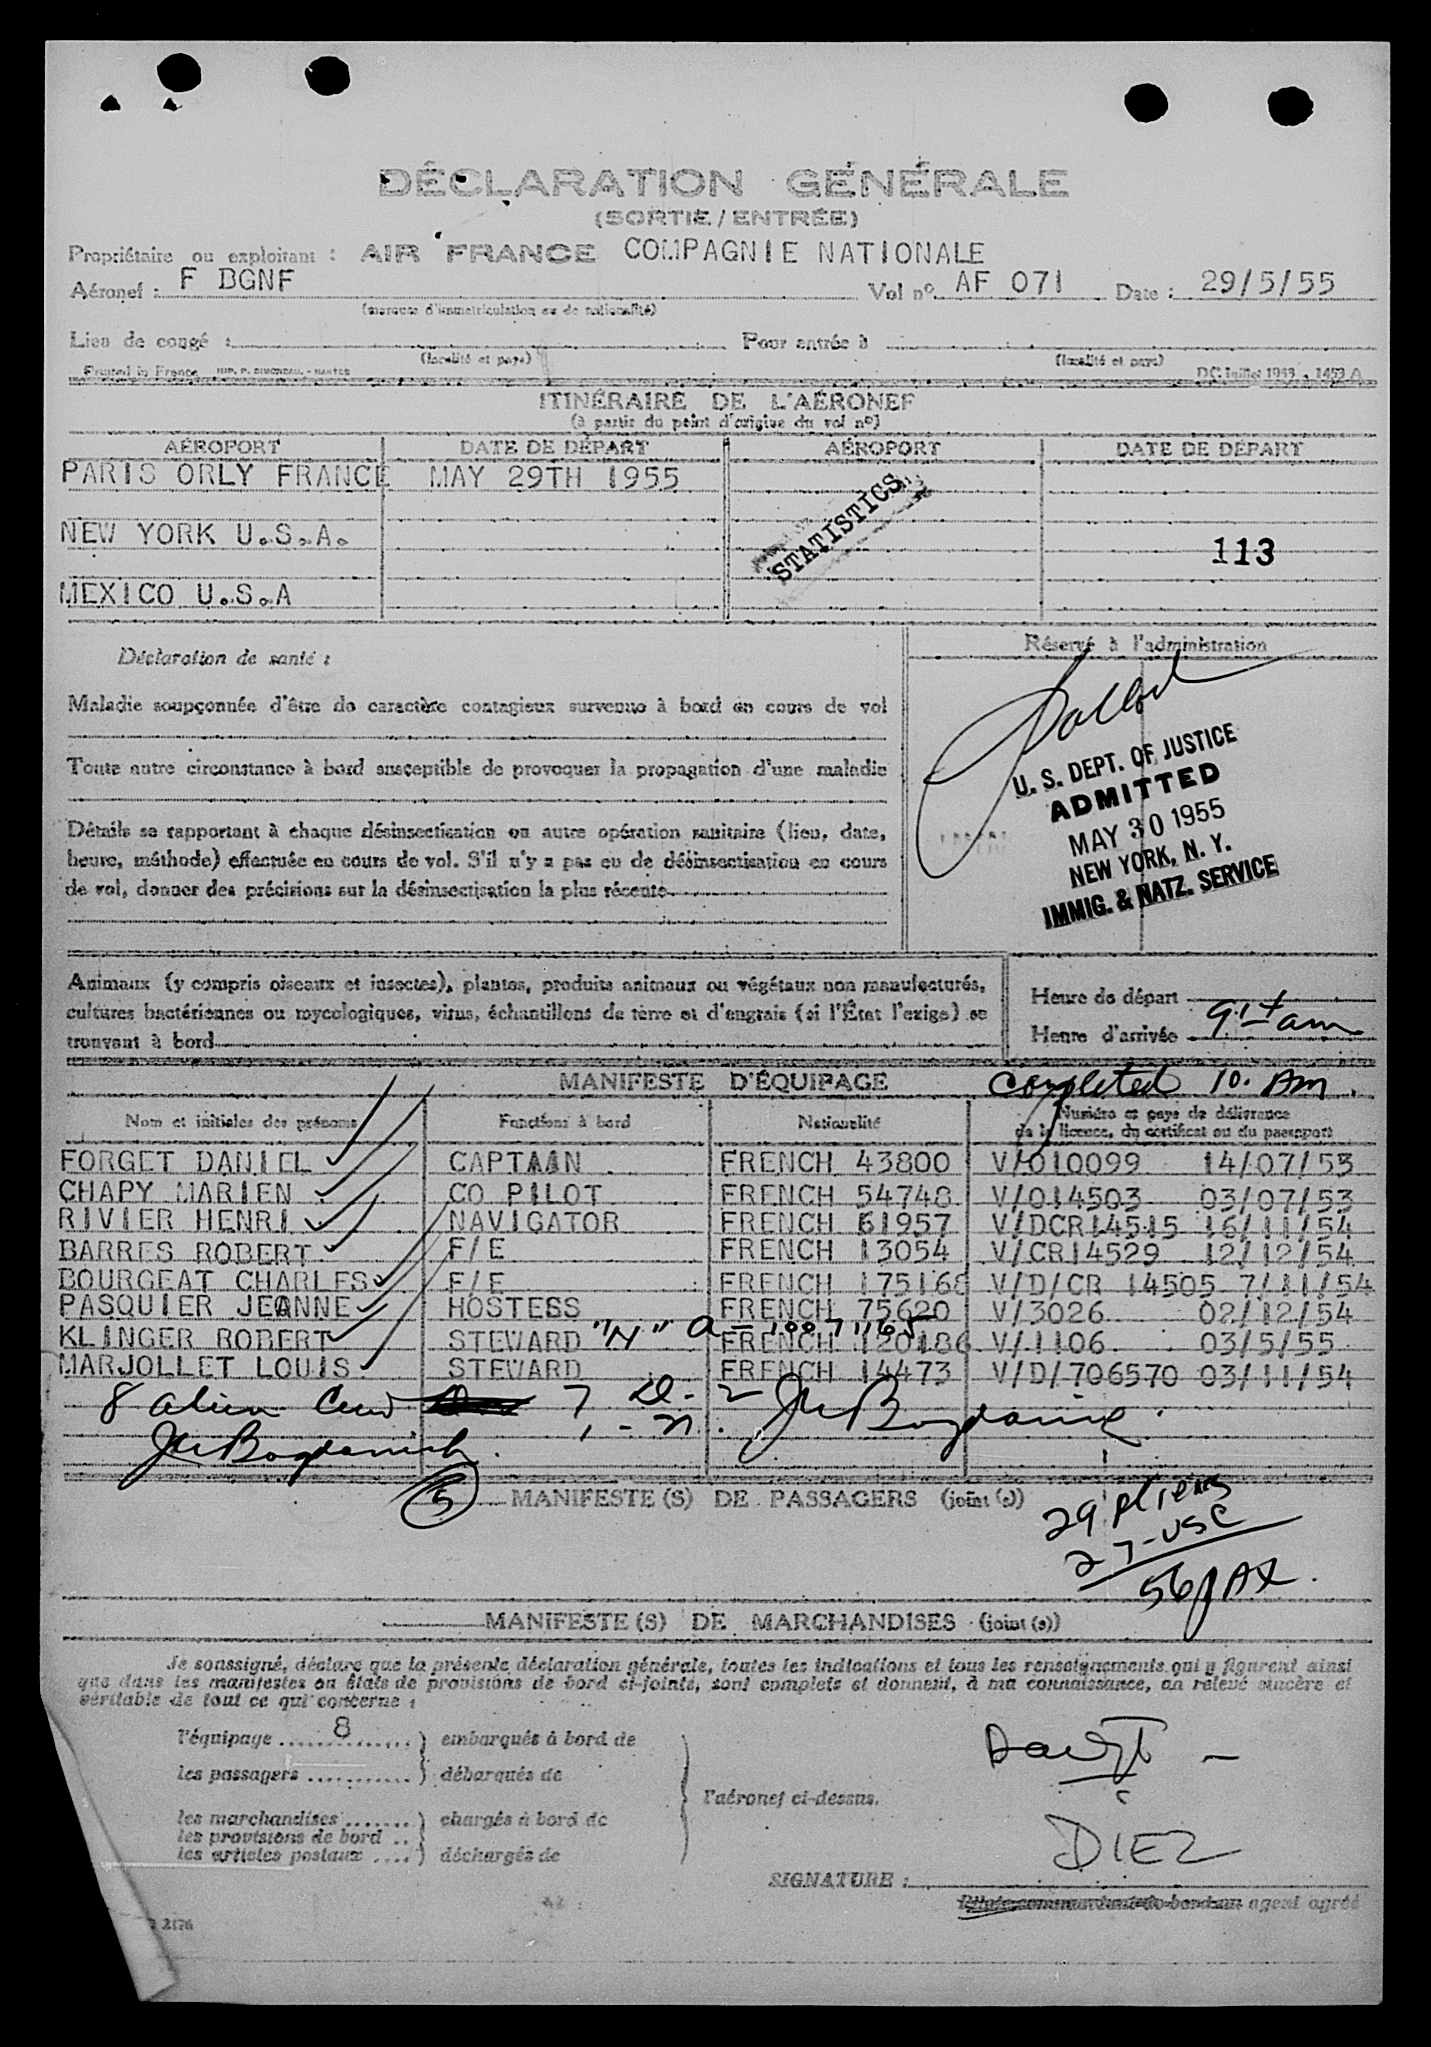 DÉCLARATION GÉNÉRALE
(SORTIE / ENTRÉE)
Propriétaire ou exploitant : AIR FRANCE COMPAGNIE NATIONALE
Aéronef : F BGNF Vol nº AF 071 Date : 29/5/55
(marques d'immatriculation ou de nationalité)
Lieu de congé : Pour entrée à
(localité et pays) (localité et pays)
Printed in France IMP. P. - NANTES DC Juillet 1953 . 1453 A
ITINÉRAIRE DE L'AÉRONEF
(à partir du point d'origine du vol nº)
AÉROPORT DATE DE DÉPART AÉROPORT DATE DE DÉPART
PARIS ORLY FRANCE MAY 29TH 1955
STATISTICS
NEW YORK U.S.A.
113
MEXICO U.S.A
Déclaration de santé :
Réservé à l'administration
Maladie soupçonnée d'être de caractère contagieux survenue à bord en cours de vol
Toute autre circonstance à bord susceptible de provoquer la propagation d'une maladie
Détails se rapportant à chaque désinsectisation ou autre opération sanitaire (lieu, date,
heure, méthode) effectuée en cours de vol. S'il n'y a pas eu de désinsectisation en cours
de vol, donner des précisions sur la désinsectisation la plus récente
U. S. DEPT. OF JUSTICE
ADMITTED
MAY 30 1955
NEW YORK, N. Y.
IMMIG. & NATZ. SERVICE
Animaux (y compris oiseaux et insectes), plantes, produits animaux ou végétaux non manufacturés,
cultures bactériennes ou mycologiques, virus, échantillons de terre et d'engrais (si l'État l'exige) se
trouvant à bord
Heure de départ
Heure d'arrivée am
MANIFESTE D'ÉQUIPAGE Completed 10. AM.
Nom et initiales des prénoms Fonctions à bord Nationalité Numéro et pays de délivrance
de la licence, du certificat ou du passeport
FORGET DANIEL CAPTAIN FRENCH 43800 V/010099 14/07/53
CHAPY MARIEN CO PILOT FRENCH 54748 V/014503 03/07/53
RIVIER HENRI NAVIGATOR FRENCH 61957 V/DCR14515 16/11/54
BARRES ROBERT F/E FRENCH 13054 V/CR14529 12/12/54
BOURGEAT CHARLES F/E FRENCH 175168 V/D/CR 14505 7/11/54
PASQUIER JEANNE HOSTESS FRENCH 75620 V/3026 02/12/54
KLINGER ROBERT STEWARD "N" FRENCH 120186 V/1106 03/5/55
MARJOLLET LOUIS STEWARD FRENCH 14473 V/D/706570 03/11/54
8 alien Crew 7 D-2
1 - N.
5
MANIFESTE (S) DE PASSAGERS (joint (s))
29 Aliens
27-USC
56 PAX.
MANIFESTE (S) DE MARCHANDISES (joint (s))
Je soussigné, déclare que la présente déclaration générale, toutes les indications et tous les renseignements qui y figurent ainsi
que dans les manifestes ou états de provisions de bord ci-joints, sont complets et donnent, à ma connaissance, un relevé sincère et
véritable de tout ce qui concerne :
l'équipage 8 embarqués à bord de
les passagers débarqués de
l'aéronef ci-dessus.
les marchandises chargés à bord de
les provisions de bord
les articles postaux déchargés de
DIEZ
SIGNATURE :
Pilote commandant de bord ou agent agréé
2176